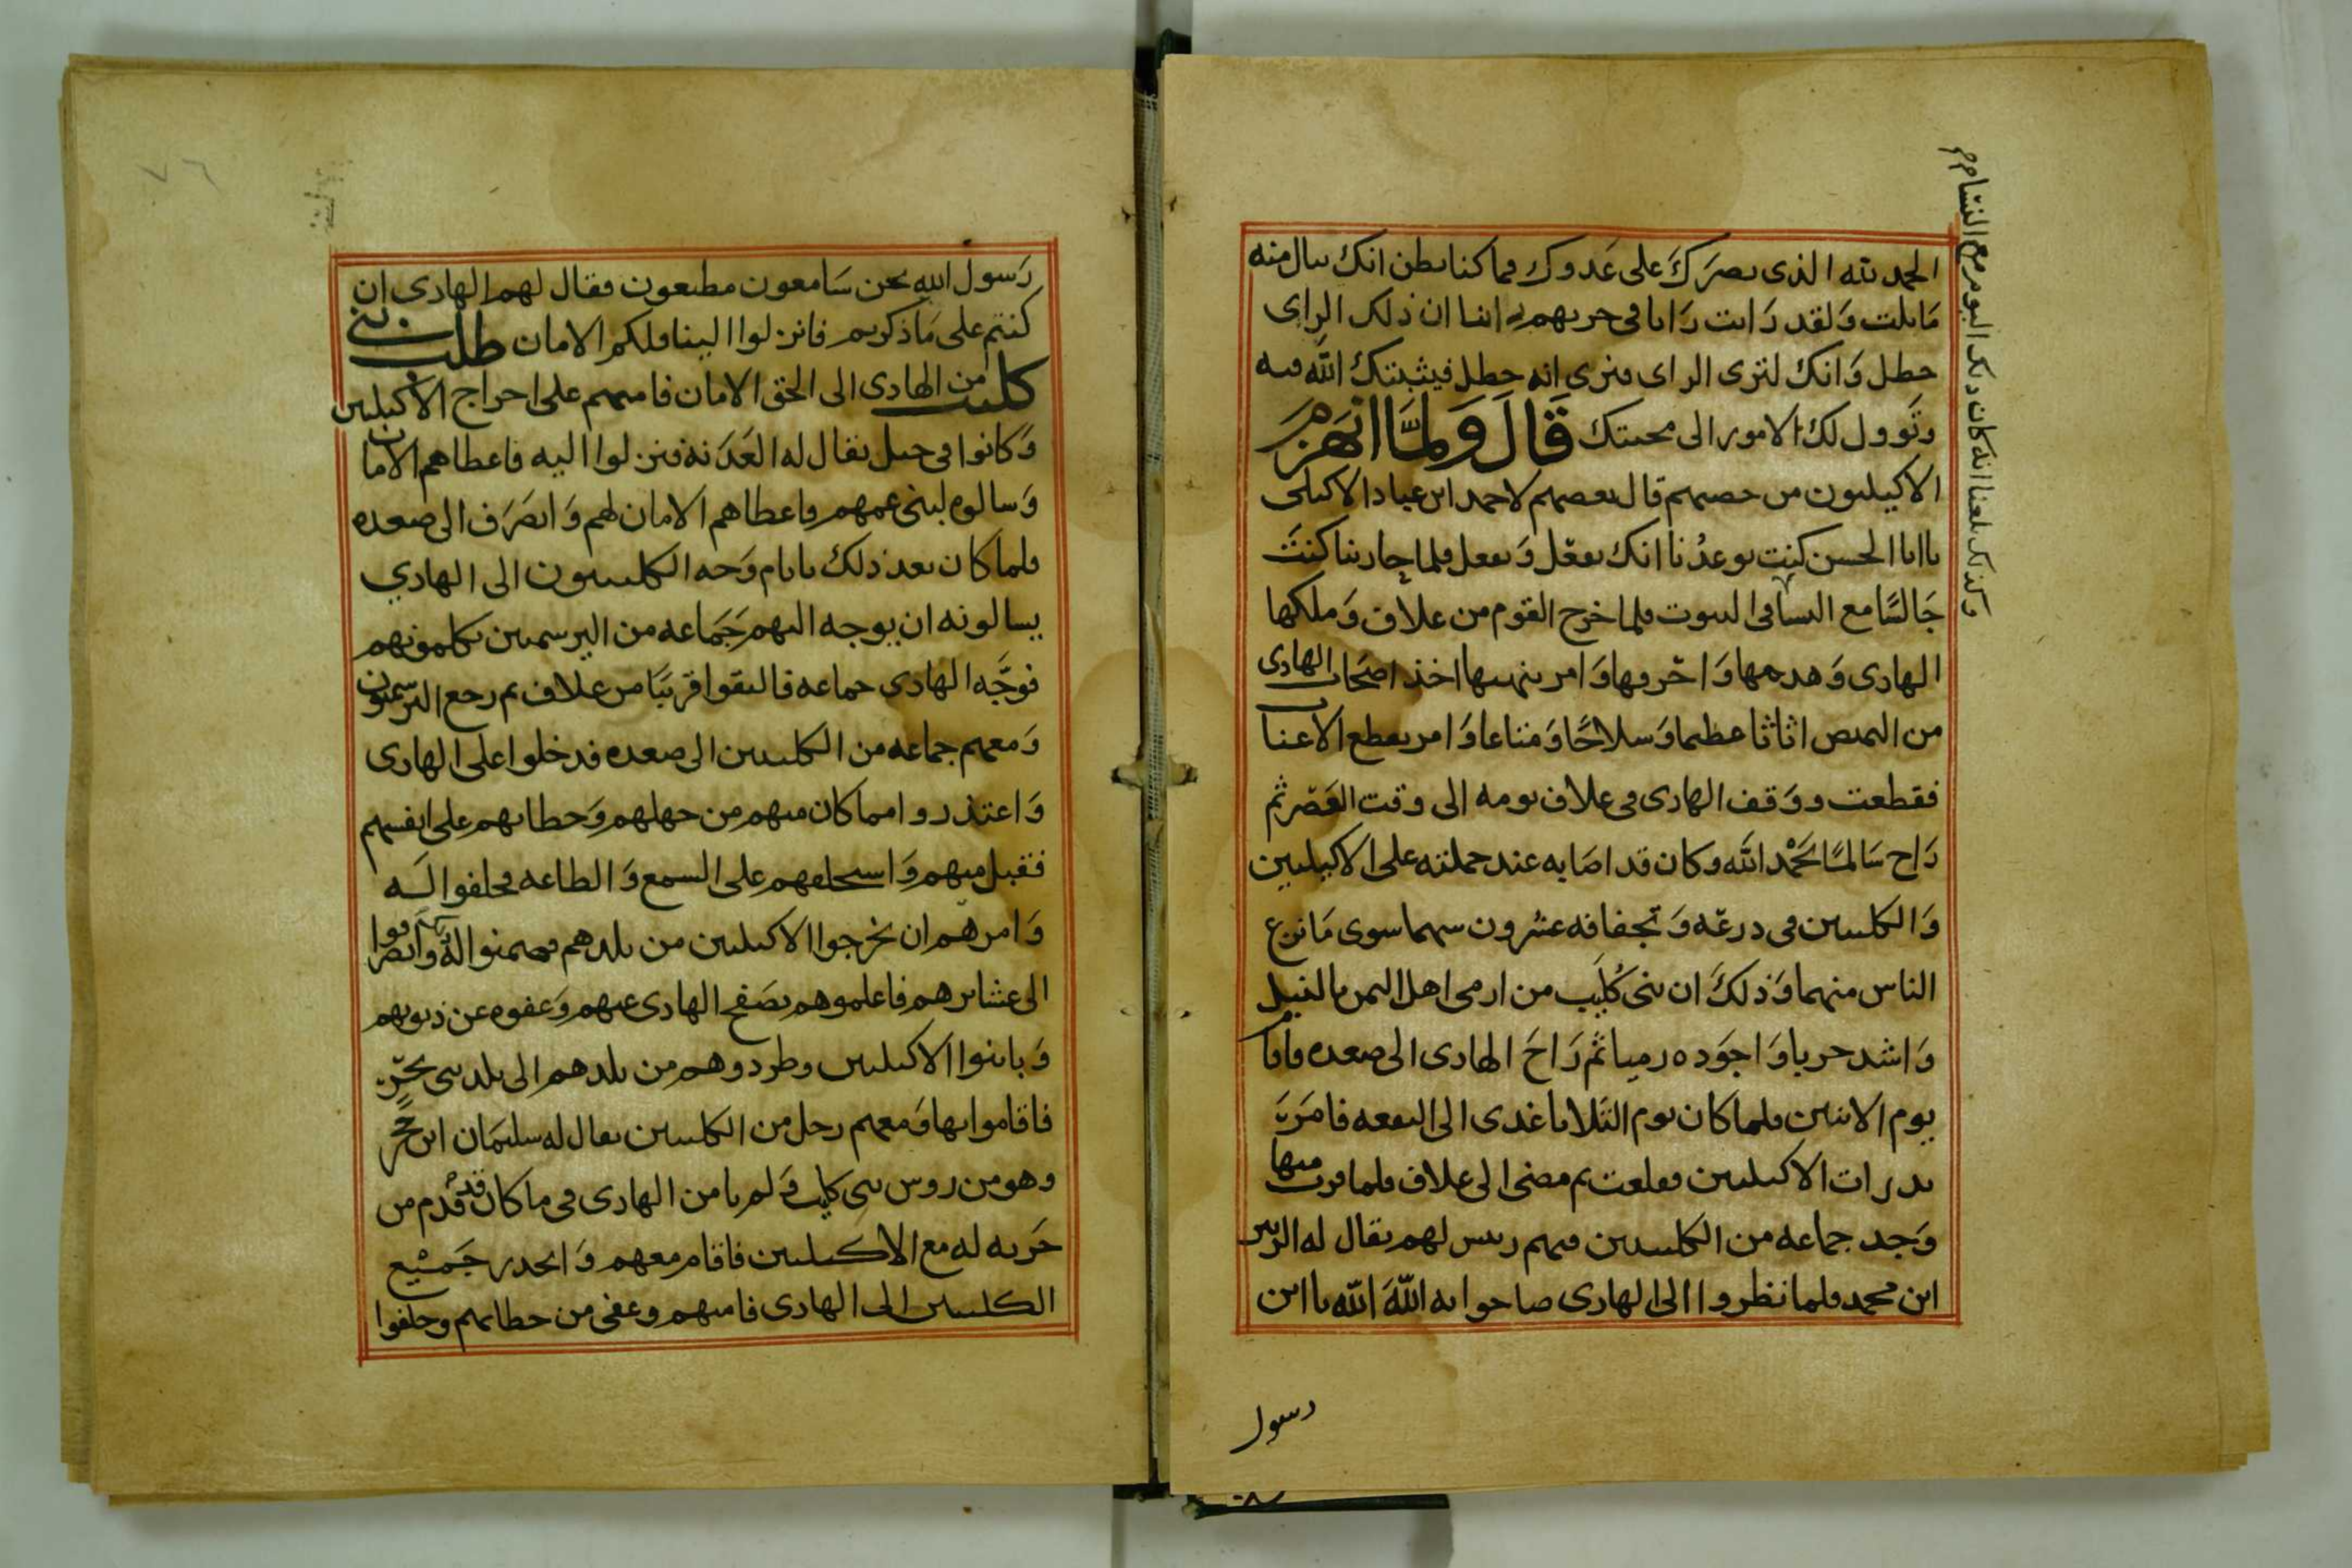 الحمد لله الذى نصرك على عدوك فما كنا نظن انك تنال منه
ما نلت ولقد رايت رايا فى حربهم اننا ان ذلك الراى
خطل وانك لترى الراى فنرى انه خطل فيثبتك الله فيه
وتوول لك الامور الى محبتك قال ولما انهزم
الاكيليون من حصنهم قال بعضهم لاحمد ابن عباد الاكيلى
يا ابا الحسن كنت توعدنا انك تفعل وتفعل فلما جاربنا كنت
جالسًا مع النسا فى البيوت فلما خرج القوم من علاف وملكها
الهادى وهدمها واخربها وامر بنهبها اخذ اصحاب الهادى
من اثاثا عظيما وسلاحًا ومتاعا وامر بقطع الاعناب
فقطعت ووقف الهادى فى علاف يومه الى وقت العصر ثم
راح سالمًا بحمد الله وكان قد اصابه عند حملته على الاكيليين
والكليبيين فى درعه وتجفافه عشرون سهما سوى ما نزع
الناس منهما وذلك ان بنى كُليب من ارمى اهل اليمن بالنبل
واشد حربا واجوده رميا ثم راح الهادى الى صعده فاقام
يوم الاثنين فلما كان يوم الثلاثا غدى الى البقعه فامر
بدرات الاكيليين فقلعت ثم مضى الى علاف فلما قرب منها
وجد جماعه من الكليبيين فيهم رييس لهم يقال له
ابن محمد فلما نظروا الى الهادى صاحوا به الله الله يا ابن
وكذلك بلغنا انه كان ذلك اليوم مع النسا
رسول
٧٦
رسول الله نحن سامعون مطيعون فقال لهم الهادى ان
كنتم على ما ذكرتم فانزلوا الينا ولكم الامان طلب بنى
كليب من الهادى الى الحق الامان فامنهم على اخراج الاكيليين
وكانوا فى جبل يقال له فنزلوا اليه فاعطاهم الامان
وسالوه لبنى عمهم فاعطاهم الامان لهم وانصرف الى صعده
فلما كان بعد ذلك بايام وجه الكليبيون الى الهادي
يسالونه ان يوجه اليهم جماعه من اليرسميين يكلمونهم
فوجَّه الهادى جماعه فالتقوا قريبًا من علاف ثم رجع اليرسميون
ومعهم جماعه من الكليبيين الى صعده فدخلوا على الهادى
واعتذروا مما كان منهم من جهلهم وخطايهم على انفسهم
فقبل منهم واستحلفهم على السمع والطاعه فحلفوا له
وامرهم ان يخرجوا الاكيليين من بلدهم فضمنوا له وانصرفوا
الى عشايرهم فاعلموهم بصفح الهادى عنهم وعفوه عن ذنوبهم
وباينوا الاكيليين وطردوهم من بلدهم الى بلد بنى
فاقاموا بها ومعهم رجل من الكليبيين يقال له سليمان ابن حجر
وهو من روس بنى كليب ولم يامن الهادى فى ما كان قد قدم من
حربه له مع الاكيليين فاقام معهم وانحدر جميع
الكليبيين الى الهادى فامنهم وعفى من خطايهم وحلفوا